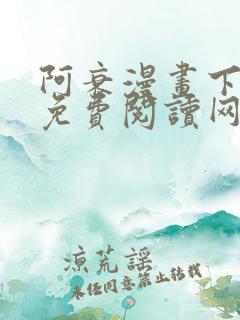 阿衰漫畫下
免費閱讀网
涼荒謠
未经同意禁止转载